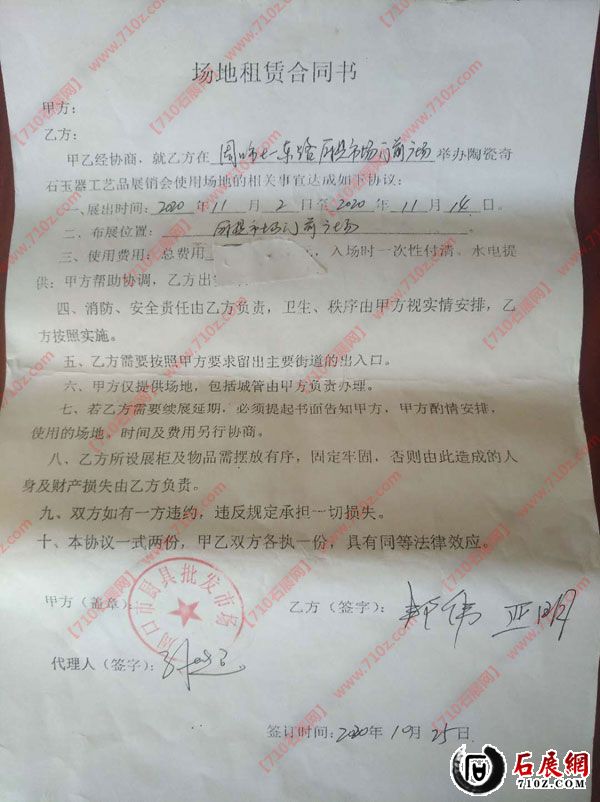 场地租赁合同书
甲方：
乙方：
甲乙经协商，就乙方在 周口七一东路 市场门前广场 举办陶瓷奇
石玉器工艺品展销会使用场地的相关事宜达成如下协议：
一、展出时间：2020 年 11 月 2 日至 2020 年 11 月 14 日。
二、布展位置： 市场门前广场 。
三、使用费用：总费用 ，入场时一次性付清。水电提
供：甲方帮助协调，乙方出
四、消防、安全责任由乙方负责，卫生、秩序由甲方视实情安排，乙
方按照实施。
五、乙方需要按照甲方要求留出主要街道的出入口。
六、甲方仅提供场地，包括城管由甲方负责办理。
七、若乙方需要续展延期，必须提起书面告知甲方，甲方酌情安排，
使用的场地、时间及费用另行协商。
八、乙方所设展柜及物品需摆放有序，固定牢固，否则由此造成的人
身及财产损失由乙方负责。
九、双方如有一方违约，违反规定承担一切损失。
十、本协议一式两份，甲乙双方各执一份，具有同等法律效应。
甲方（盖章）：
周口市 批发市场
乙方（签字）： 伟 亚明
代理人（签字）：
签订时间：2020年 10月 25日
【710石展网】 www.710z.com
石展網
710z.com